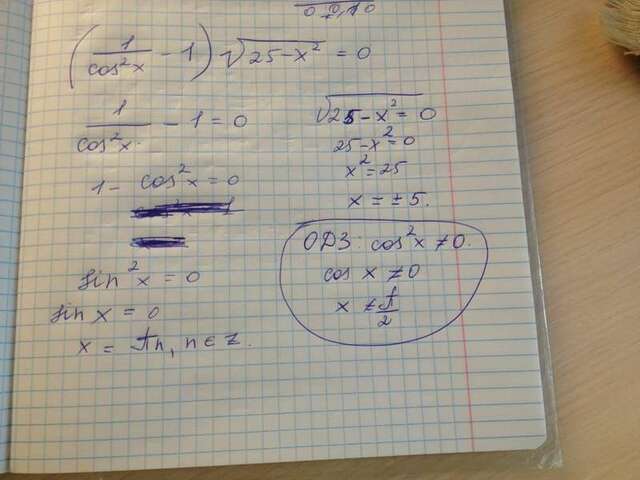 (1/cos²x - 1) √25-x² = 0
1/cos²x - 1 = 0
1 - cos²x = 0
sin²x = 0
sin x = 0
x = πn, n ∈ Z.
√25-x² = 0
25-x² = 0
x² = 25
x = ±5.
ОДЗ: cos²x ≠ 0.
cos x ≠ 0
x ≠ π/2